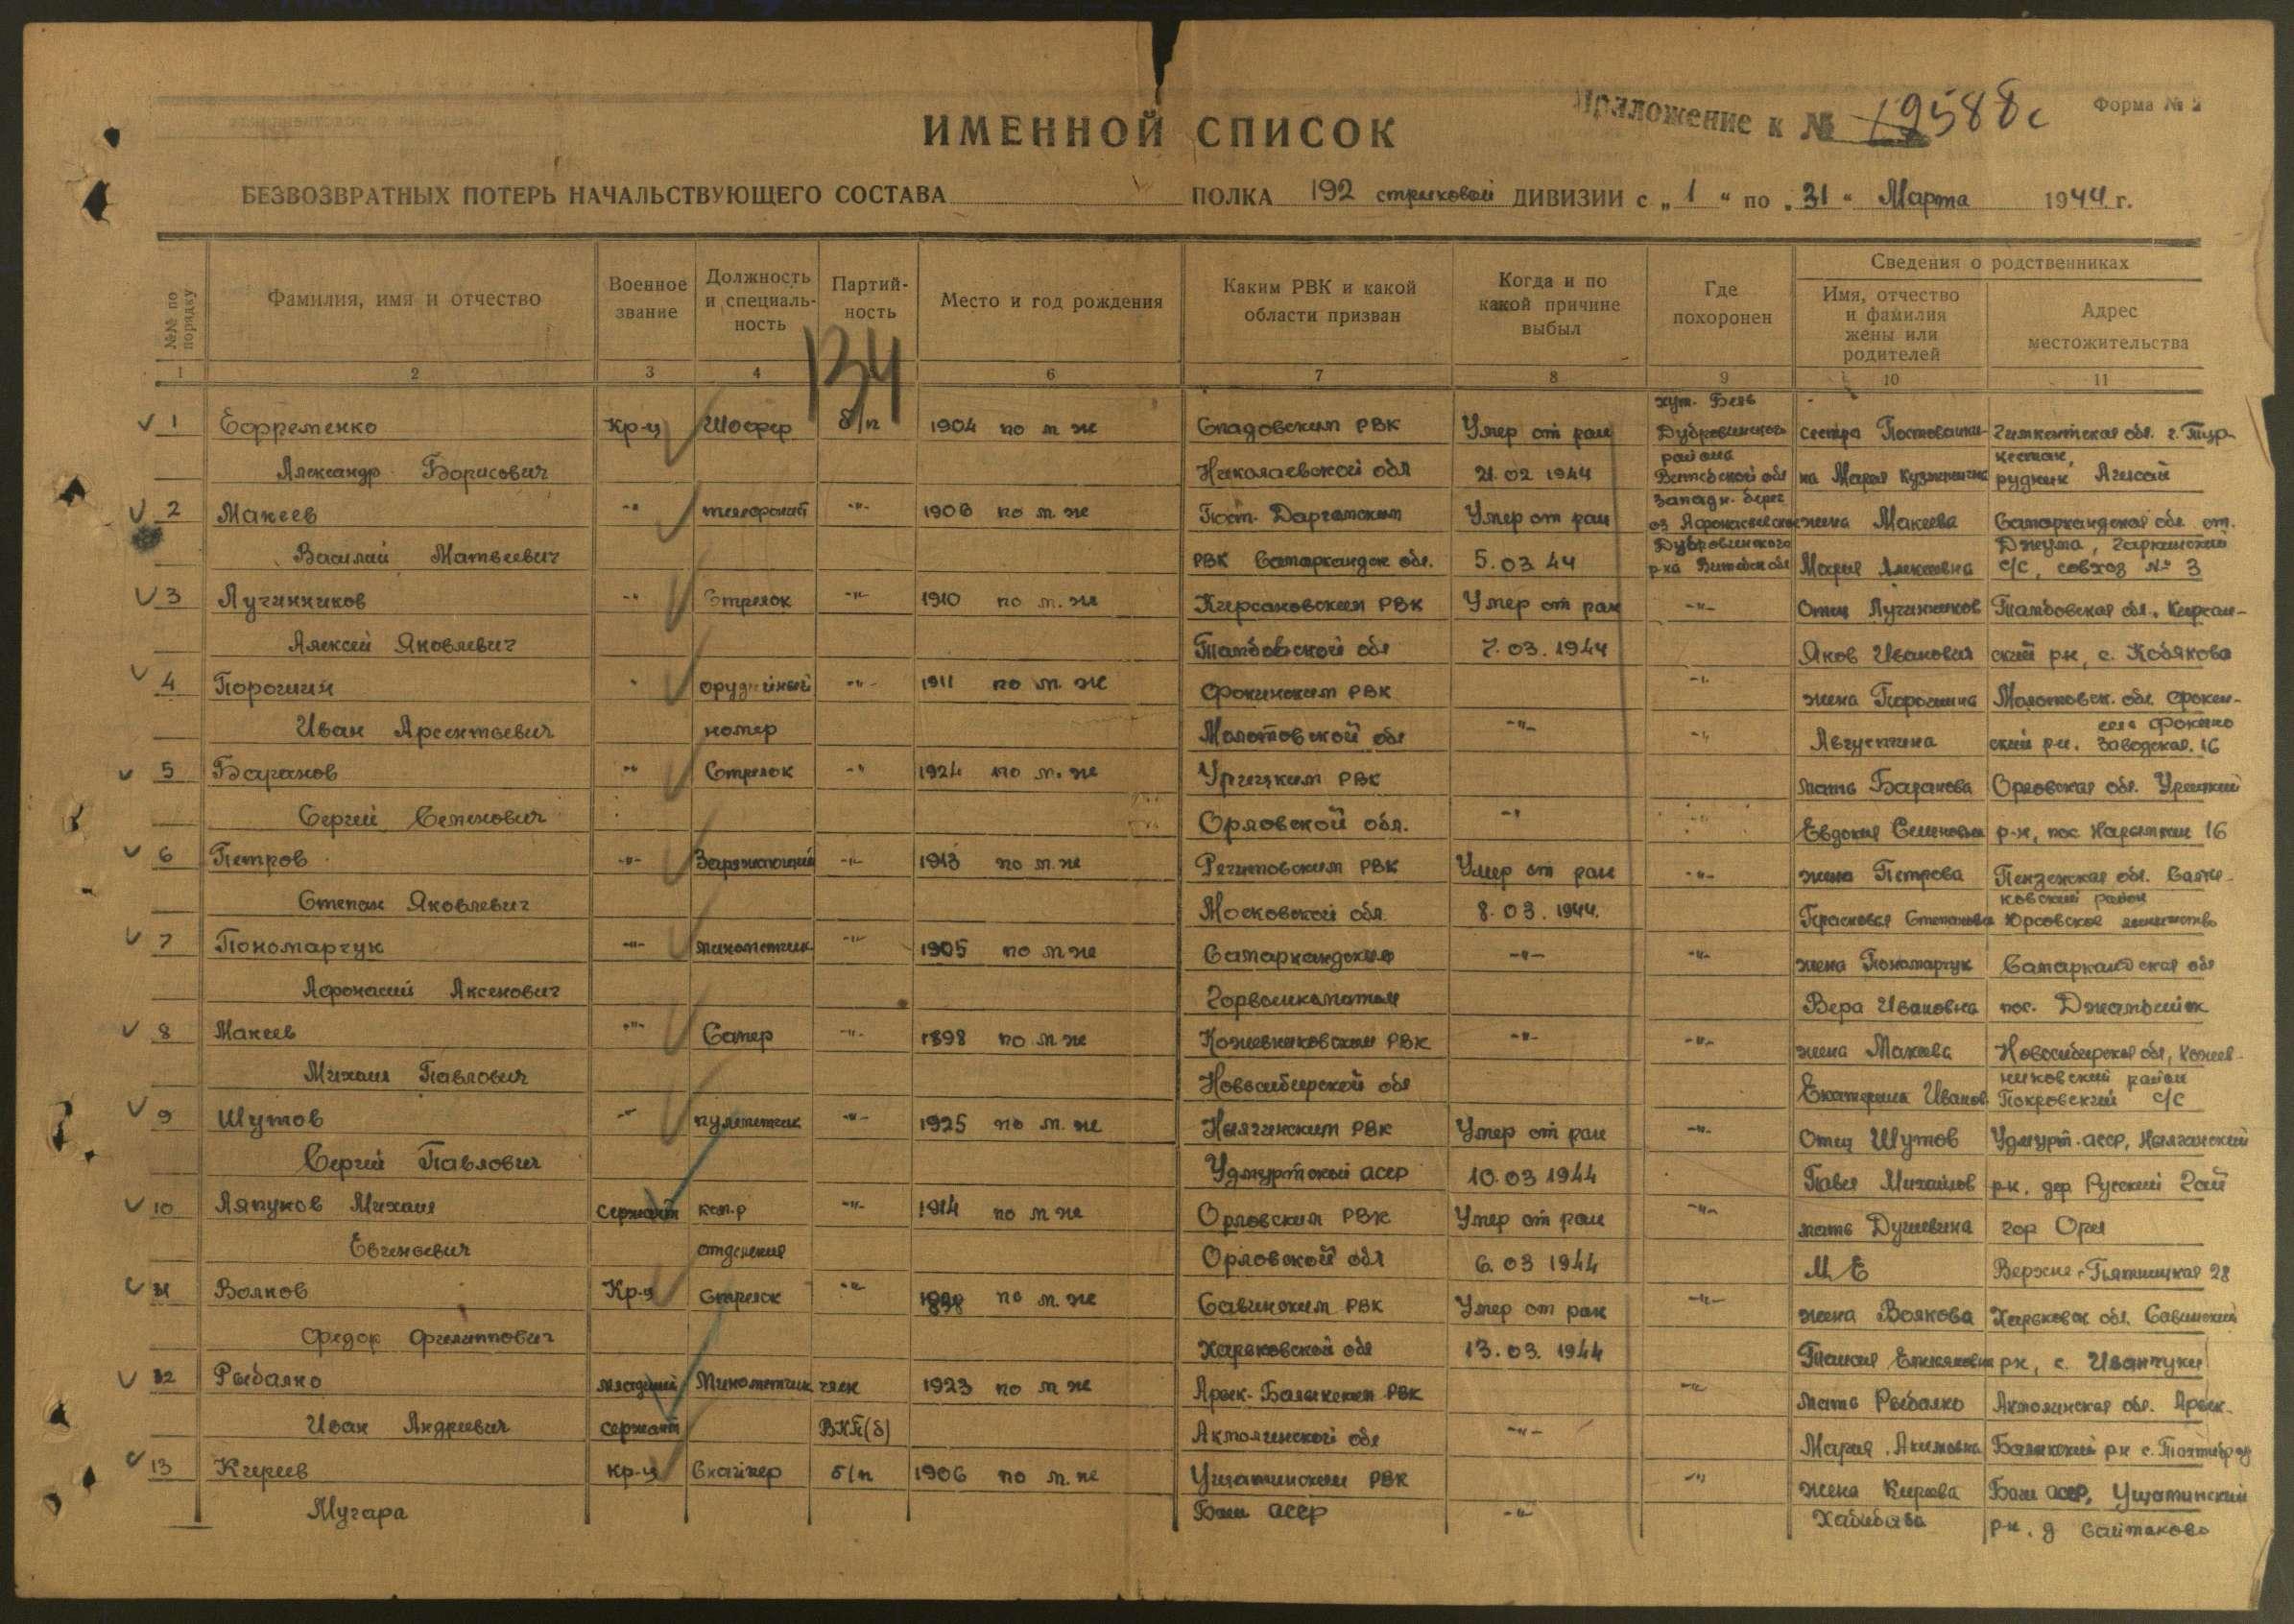 Приложение к № 19588с
Форма № 2
ИМЕННОЙ СПИСОК
БЕЗВОЗВРАТНЫХ ПОТЕРЬ НАЧАЛЬСТВУЮЩЕГО СОСТАВА ПОЛКА 192 стрелковой ДИВИЗИИ с „ 1 “ по „ 31 “ Марта 1944 г.
№№ по порядку
Фамилия, имя и отчество
Военное звание
Должность и специальность
Партийность
Место и год рождения
Каким РВК и какой области призван
Когда и по какой причине выбыл
Где похоронен
Сведения о родственниках
Имя, отчество и фамилия жены или родителей
Адрес местожительства
1 2 3 4 6 7 8 9 10 11
134
хут.
1 Ефременко Кр-ц Шофер б/п 1904 по м же РВК Умер от ран Дубровинского сестра
района
Александр Борисович Николаевской обл 21.02 1944 Витебской обл на Мария Кузминична рудник Ачисай
Западн. берег
2 Макеев -"- телефонист -"- 1906 по м. же Пост-Даргомским Умер от ран оз жена Макеева Самаркандская обл. ст.
Дубровинского Джума,
Василий Матвеевич РВК Самаркандск обл. 5.03 44 р-на Витебск обл Мария Алексеевна с/с, совхоз № 3
3 Лучинников -"- Стрелок -"- 1910 по м. же Кирсановским РВК Умер от ран -"- Отец Лучинников Тамбовская обл. Кирсан-
Алексей Яковлевич Тамбовской обл 7.03.1944 Яков Иванович ский рн, с. Кобякова
4 Порошин " орудийный -"- 1911 по м. же Фокинским РВК -"- жена Порошина Молотовск. обл. Фокин-
село Фокино
Иван Арсентьевич номер Молотовской обл -"- -"- Августина ский рн. Заводская. 16
5 Баранов -"- Стрелок -"- 1924 по м. же Урицким РВК мать Баранова Орловская обл. Урицкий
Сергей Семенович Орловской обл. -"- Евдокия Семеновна р-н, пос. 16
6 Петров -"- Заряжающий -"- 1913 по м. же РВК Умер от ран -"- жена Петрова Пензенская обл.
ковский район
Степан Яковлевич Московской обл. 8.03.1944. Прасковья Степановна Юрсовское
7 Пономарчук -"- минометчик -"- 1905 по м же Самаркандским -"- -"- жена Пономарчук Самаркандская обл
Афонасий Аксенович Горвоенкоматом Вера Ивановна пос.
8 Макеев -"- Сапер -"- 1898 по м же Кожевниковским РВК -"- -"- жена Макеева Новосибирская обл, Кожев-
никовский район
Михаил Павлович Новосибирской обл Екатерина Иванов Покровский с/с
9 Шутов -"- пулеметчик -"- 1925 по м. же Нылгинским РВК Умер от ран -"- Отец Шутов Удмурт. асср, Нылгинский
Сергей Павлович Удмуртской асср 10.03 1944 Павел Михайлов рн. дер Русский Гай
10 Ляпунов Михаил сержант ком-р -"- 1914 по м же Орловским РВК Умер от ран -"- мать Душевина гор Орел
Евгеньевич отделения Орловской обл 6.03 1944 М Е Верхне-Пятницкая 28
11 Волков Кр-ц Стрелок -"- 1898 по м. же Савинским РВК Умер от ран -"- жена Волкова Харьковск обл. Савинский
Федор Филиппович Харьковской обл 13.03.1944 рн, с. Иванчуки
12 Рыбалко младший Минометчик член 1923 по м же Арык-Балыкским РВК -"- мать Рыбалко Акмолинская обл. Арык-
Иван Андреевич сержант ВКП(б) Акмолинской обл -"- Мария Акимовна Балыкский рн с.
13 Киреев кр-ц Снайпер б/п 1906 по м. же РВК -"- жена Кирева Баш асср,
Мугара Баш асср -"- рн. д Саитаково